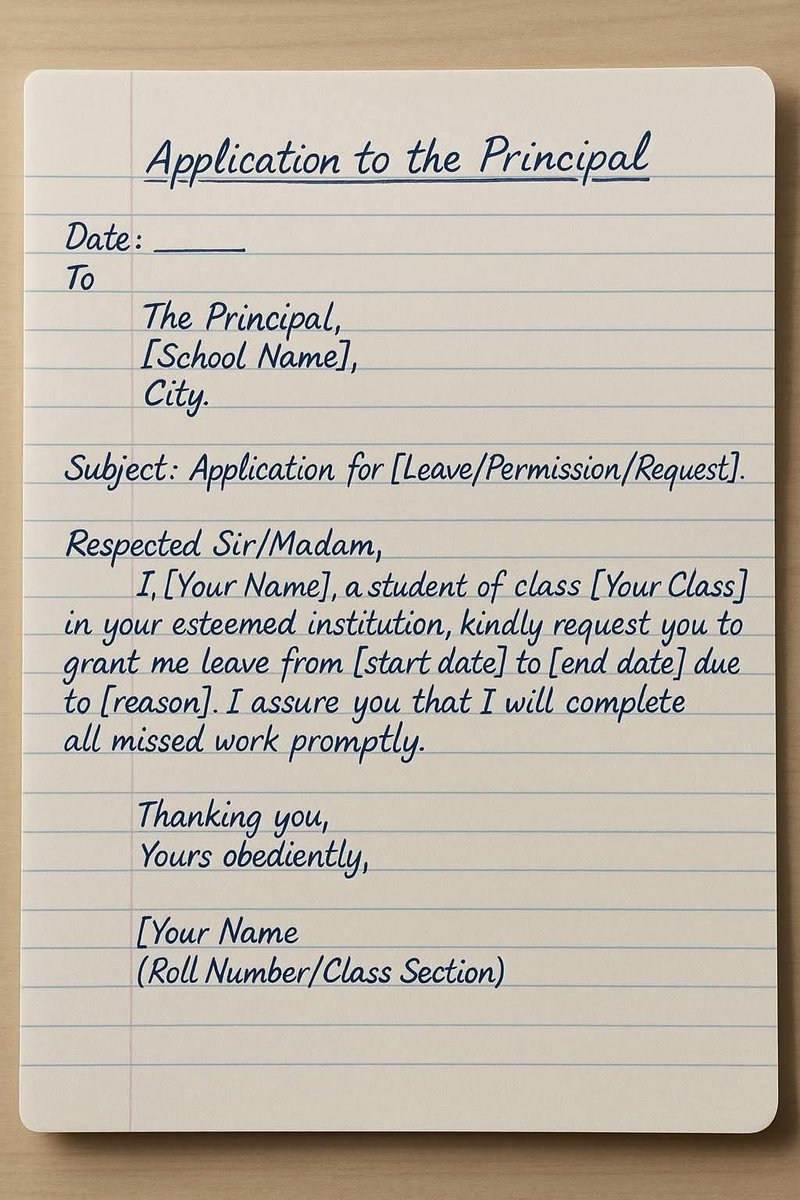 Application to the Principal
Date: ______
To
The Principal,
[School Name],
City.
Subject: Application for [Leave/Permission/Request].
Respected Sir/Madam,
I, [Your Name], a student of class [Your Class]
in your esteemed institution, kindly request you to
grant me leave from [start date] to [end date] due
to [reason]. I assure you that I will complete
all missed work promptly.
Thanking you,
Yours obediently,
[Your Name
(Roll Number/Class Section)